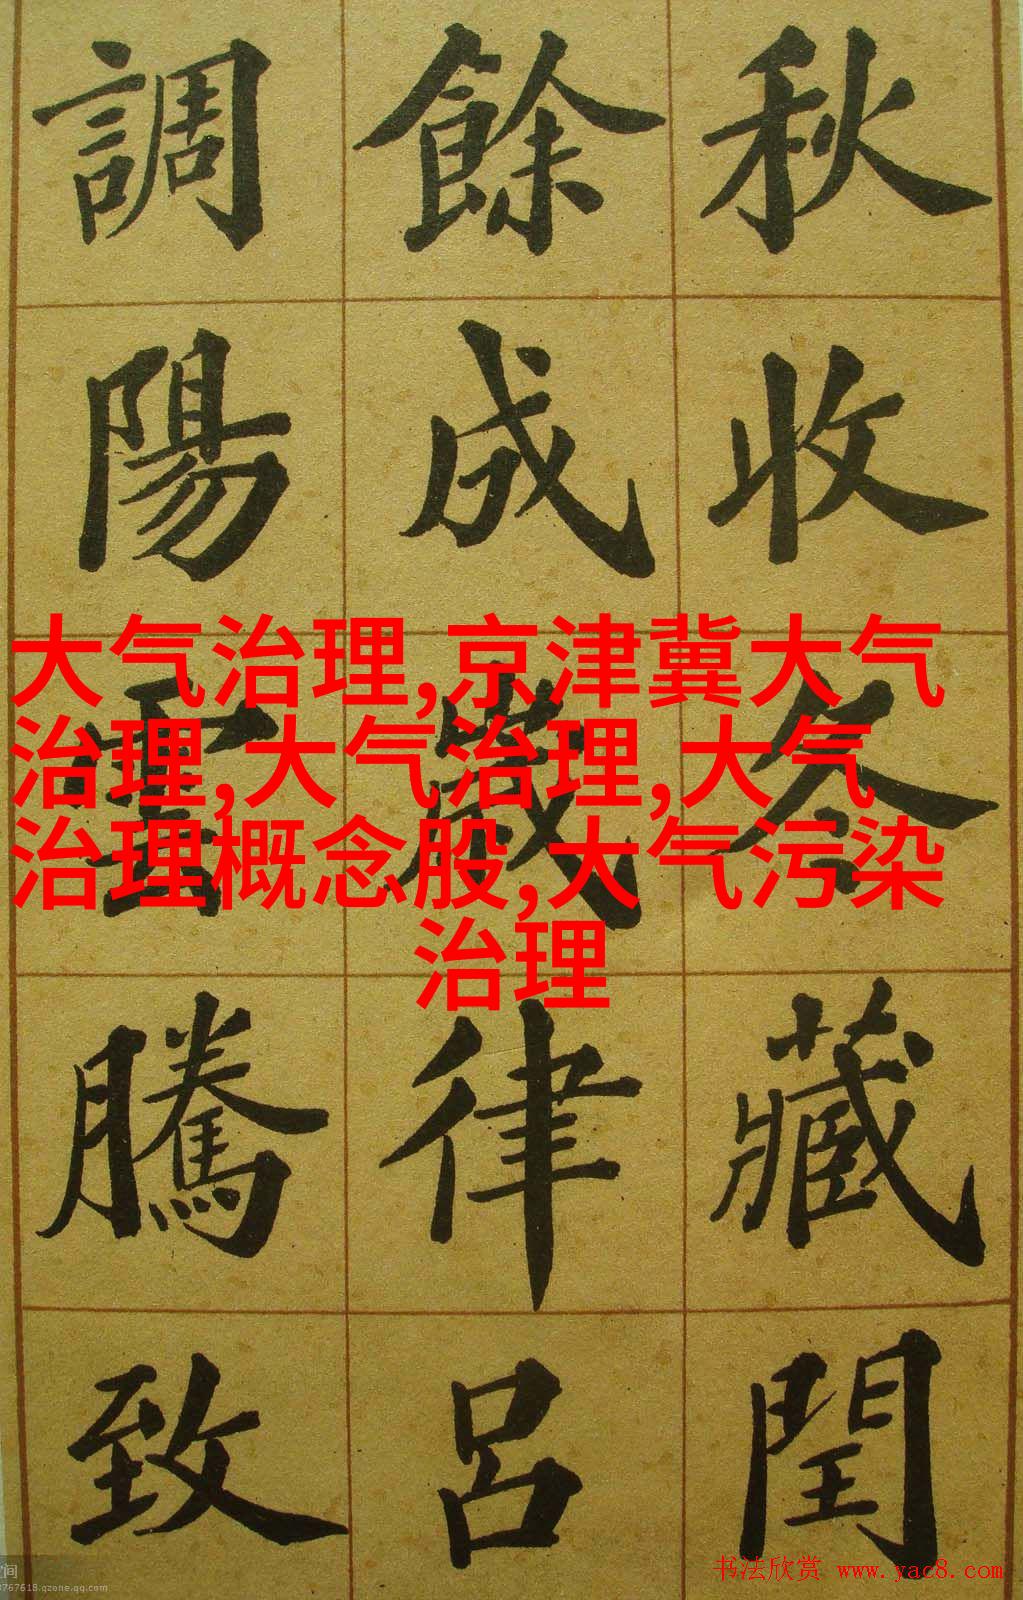 秋收冬藏閏
餘成歲律呂
調陽雲騰致
大气治理,京津冀大气
治理,大气治理,大气
治理概念股,大气污染
治理
书法欣赏 www.yac8.com
空间
3767618.qzone.qq.com